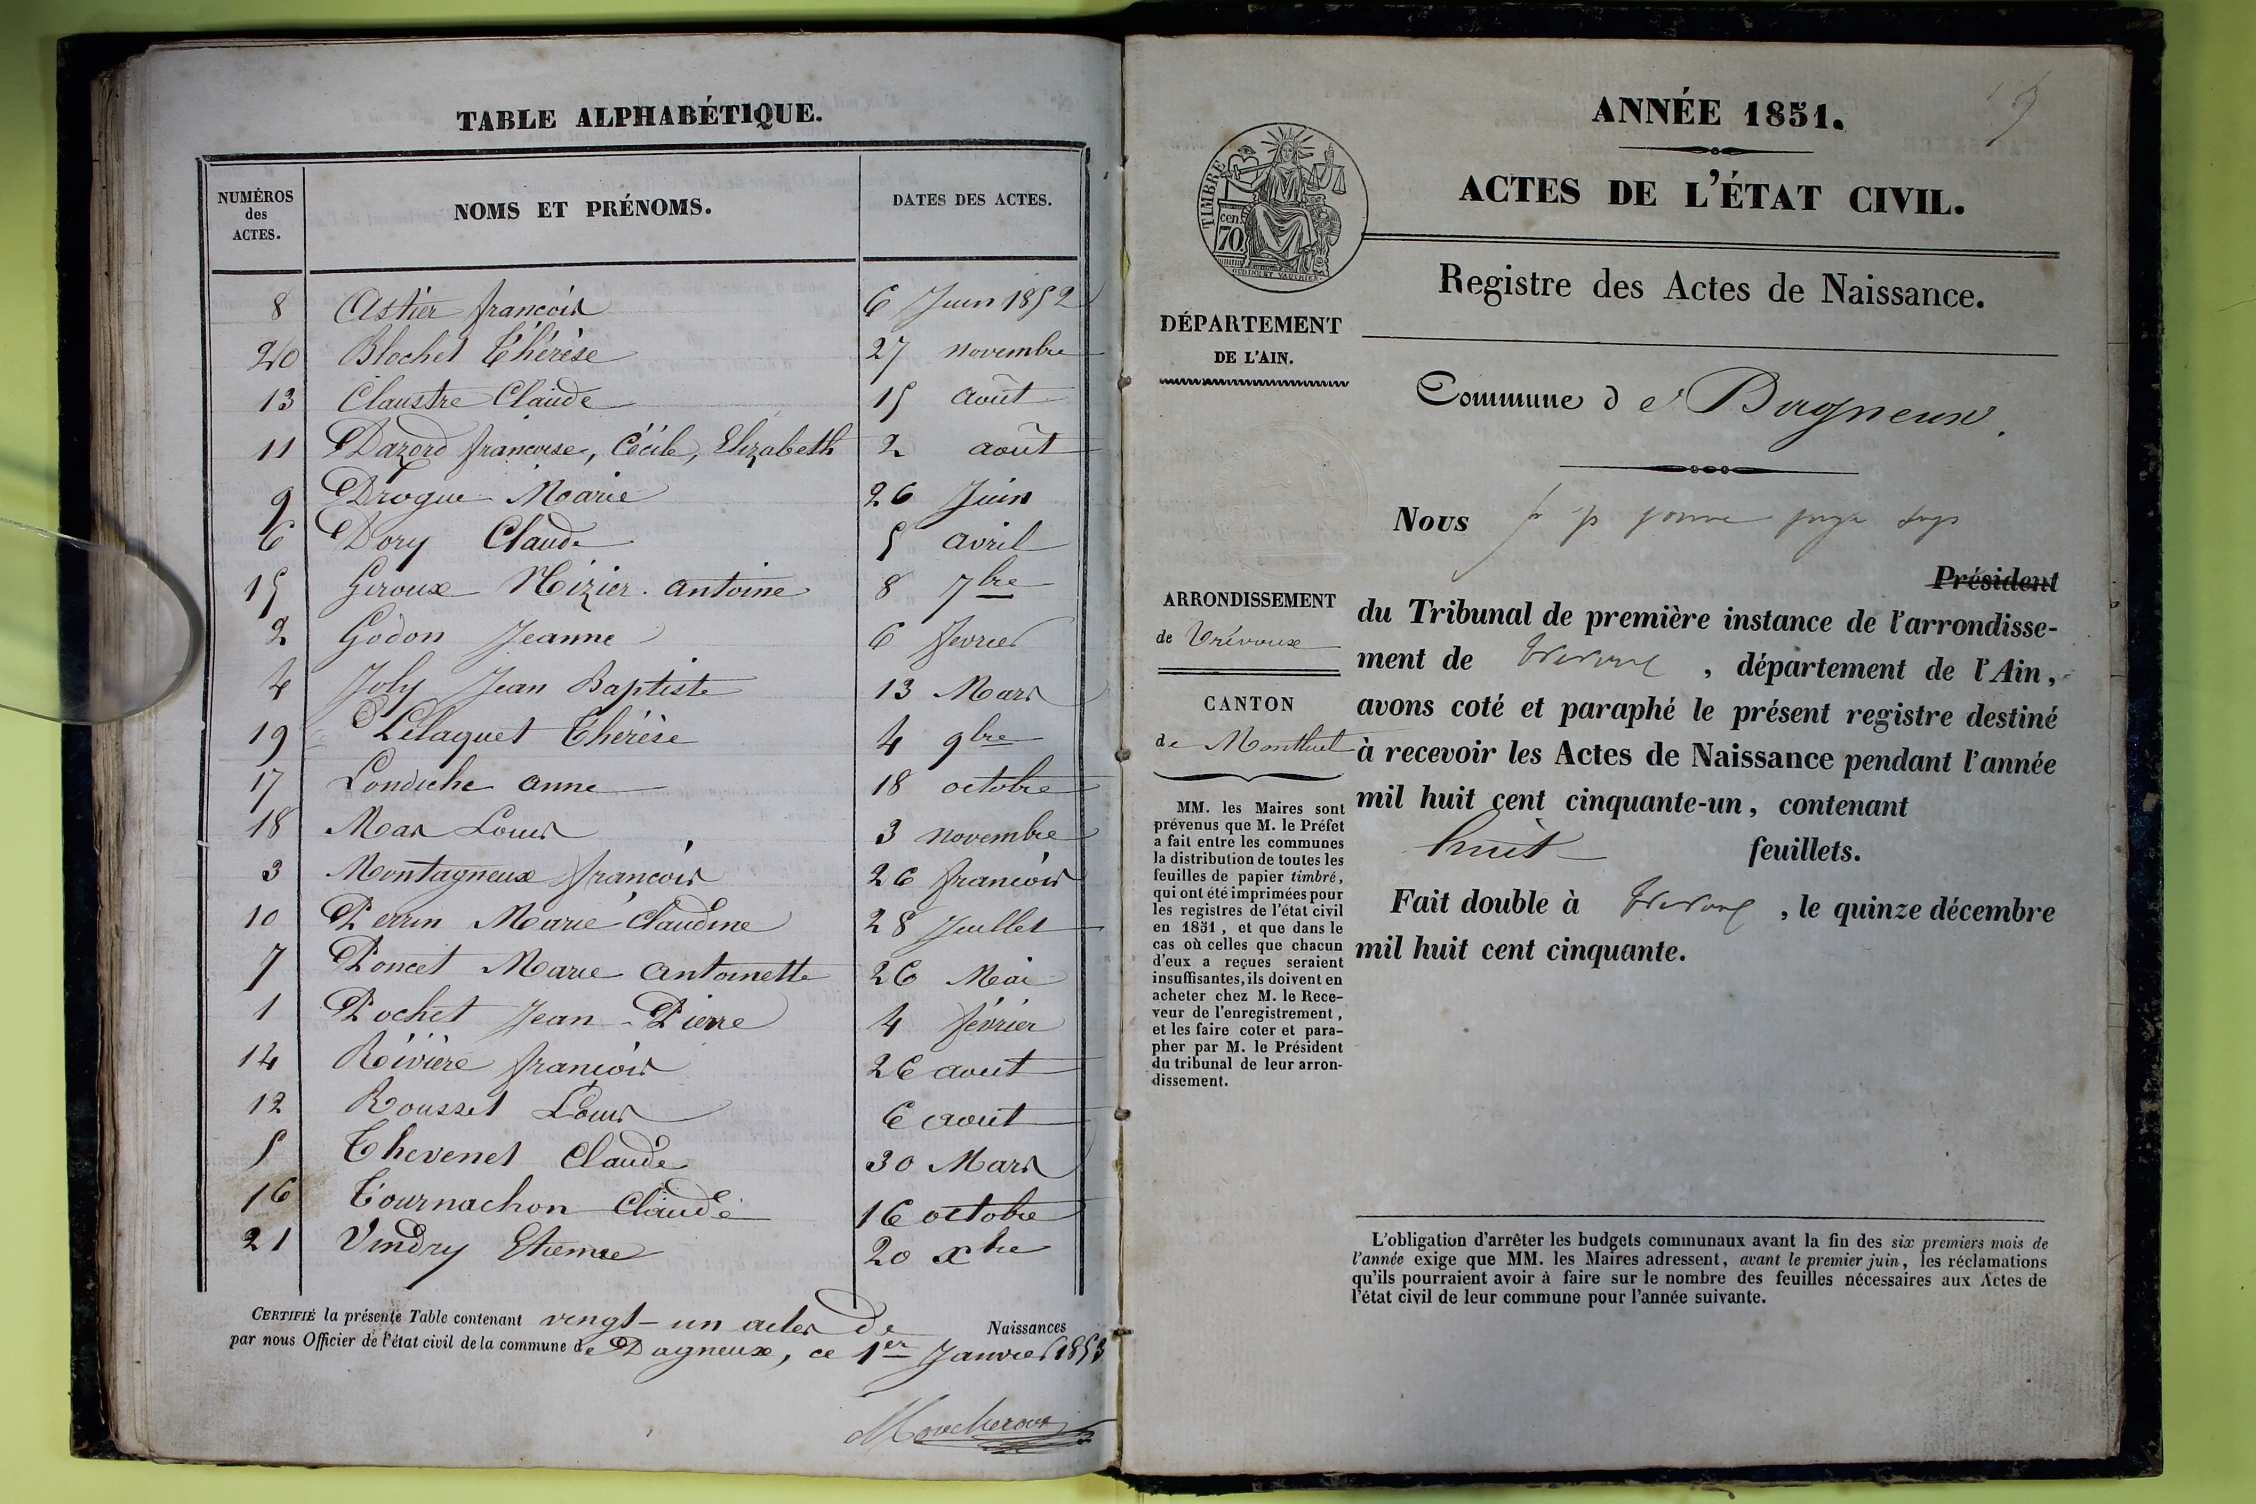 TABLE ALPHABÉTIQUE.
NUMÉROS des ACTES. NOMS ET PRÉNOMS. DATES DES ACTES.
8 Astier françois 6 Juin 1852
20 Blochet Thérèse 27 novembre
13 Claustre Claude 15 août
11 Dazord françoise, Cécile, Elizabeth 2 août
9 Drogue Marie 26 Juin
6 Dory Claude 5 avril
15 Giroux Nizier. antoine 8 7bre
2 Godon Jeanne 6 fevrier
4 Joly Jean Baptiste 13 Mars
19 Lélaquet Thérèse 4 9bre
17 Londiche anne 18 octobre
18 Mas Louis 3 novembre
3 Montagneux françois 26 françois
10 Perrin Marie Claudine 28 Juillet
7 Poncet Marie antoinette 26 Mai
1 Pochet Jean-Pierre 4 février
14 Rivière françois 26 aout
12 Rousset Louis 6 aout
5 Thevenet Claude 30 Mars
16 Tournachon Claude 16 octobre
21 Vindry Etienne 20 xbre
CERTIFIÉ la présente Table contenant vingt-un actes de Naissances
par nous Officier de l'état civil de la commune de Dagneux, ce 1er Janvier 1853
ANNÉE 1851.
ACTES DE L'ÉTAT CIVIL.
TIMBRE
70 cen.
Registre des Actes de Naissance.
DÉPARTEMENT
DE L'AIN.
Commune de Dagneux.
Nous
Président
ARRONDISSEMENT
de Trévoux
CANTON
de Montluel
du Tribunal de première instance de l'arrondisse-
ment de Trevoux, département de l'Ain,
avons coté et paraphé le présent registre destiné
à recevoir les Actes de Naissance pendant l'année
mil huit cent cinquante-un, contenant
huit feuillets.
Fait double à Trevoux, le quinze décembre
mil huit cent cinquante.
MM. les Maires sont
prévenus que M. le Préfet
a fait entre les communes
la distribution de toutes les
feuilles de papier timbré,
qui ont été imprimées pour
les registres de l'état civil
en 1851, et que dans le
cas où celles que chacun
d'eux a reçues seraient
insuffisantes, ils doivent en
acheter chez M. le Rece-
veur de l'enregistrement,
et les faire coter et para-
pher par M. le Président
du tribunal de leur arron-
dissement.
L'obligation d'arrêter les budgets communaux avant la fin des six premiers mois de
l'année exige que MM. les Maires adressent, avant le premier juin, les réclamations
qu'ils pourraient avoir à faire sur le nombre des feuilles nécessaires aux Actes de
l'état civil de leur commune pour l'année suivante.